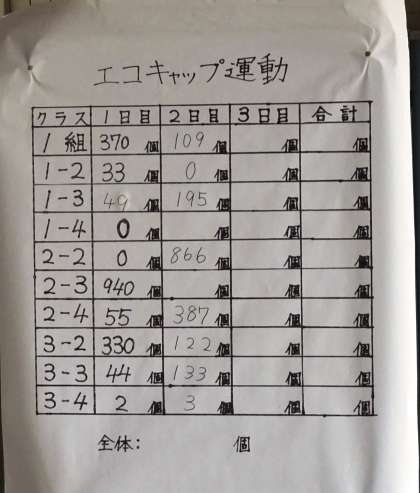 エコキャップ運動
クラス 1日目 2日目 3日目 合計
1組 370個 109個 個 個
1-2 33個 0個 個 個
1-3 49個 195個 個 個
1-4 0個 個 個 個
2-2 0個 866個 個 個
2-3 940個 個 個 個
2-4 55個 387個 個 個
3-2 330個 122個 個 個
3-3 44個 133個 個 個
3-4 2個 3個 個 個
全体: 個